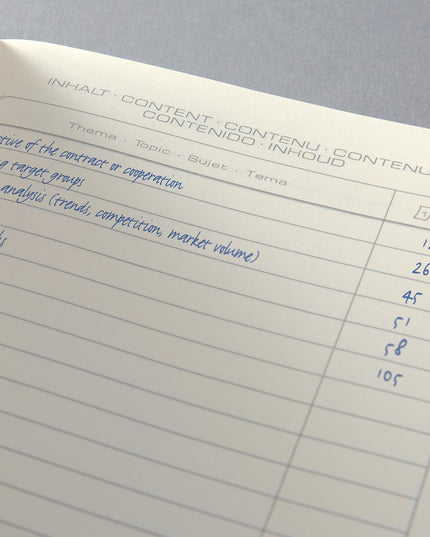 INHALT · CONTENT · CONTENU · CONTENU
CONTENIDO · INHOUD
Thema · Topic · Sujet · Tema
of the contract or cooperation
target groups 26
analysis (trends, competition, market volume) 45
51
58
105